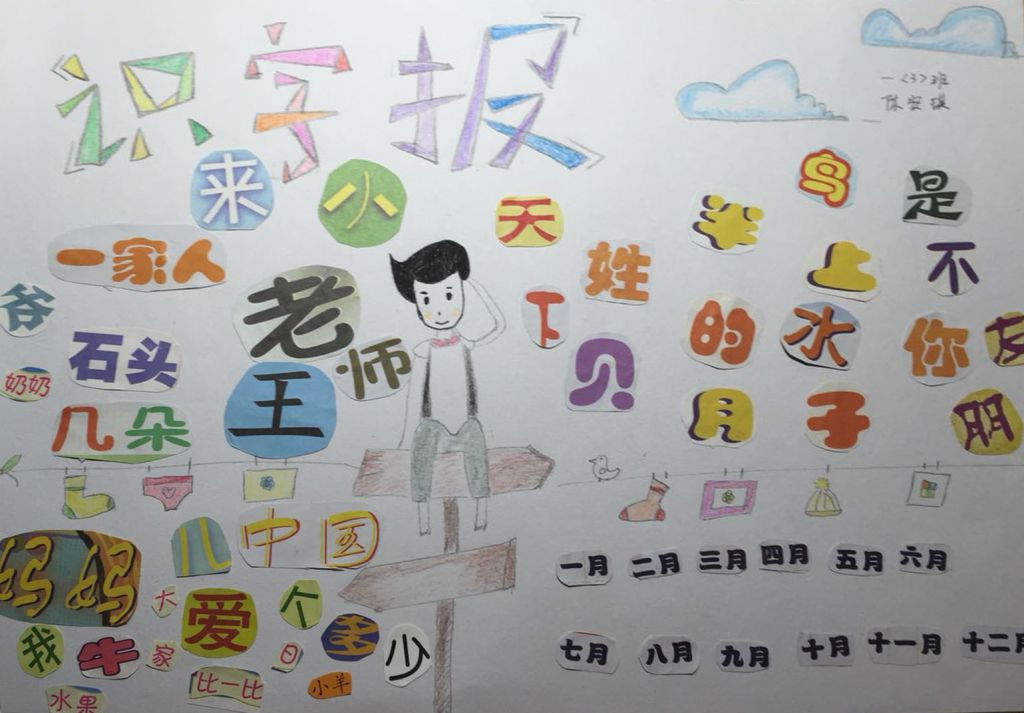 识字报
一〈3〉班
陈安琪
来
小
天
半
鸟
是
一家人
姓
上
不
爷
老师
下
的
水
你
友
石头
贝
奶奶
王
月
子
朋
几朵
儿
中国
妈妈
一月 二月 三月 四月 五月 六月
大
爱
个
我
牛
家
日
多
少
七月 八月 九月 十月 十一月 十二月
水果
比一比
小羊